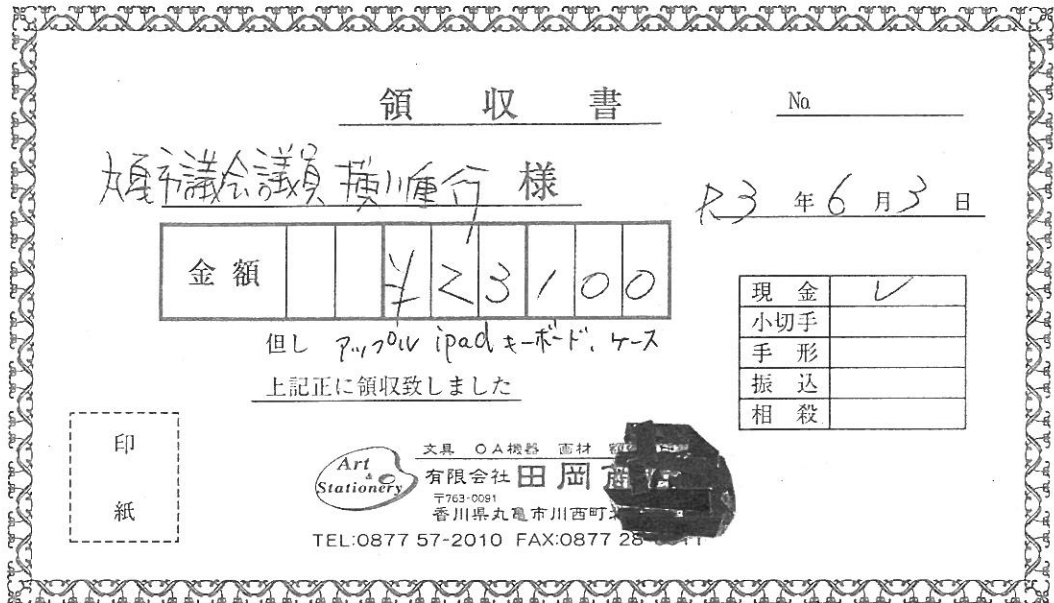 領 収 書
No
丸亀市議会議員 横川重行 様
R3 年 6 月 3 日
金額 ¥23100
但し アップル ipad キーボード、ケース
上記正に領収致しました
現 金 レ
小切手
手 形
振 込
相 殺
印
紙
Art & Stationery
文具 OA機器 画材
有限会社 田岡
〒763-0091
香川県丸亀市川西町
TEL:0877 57-2010 FAX:0877 28